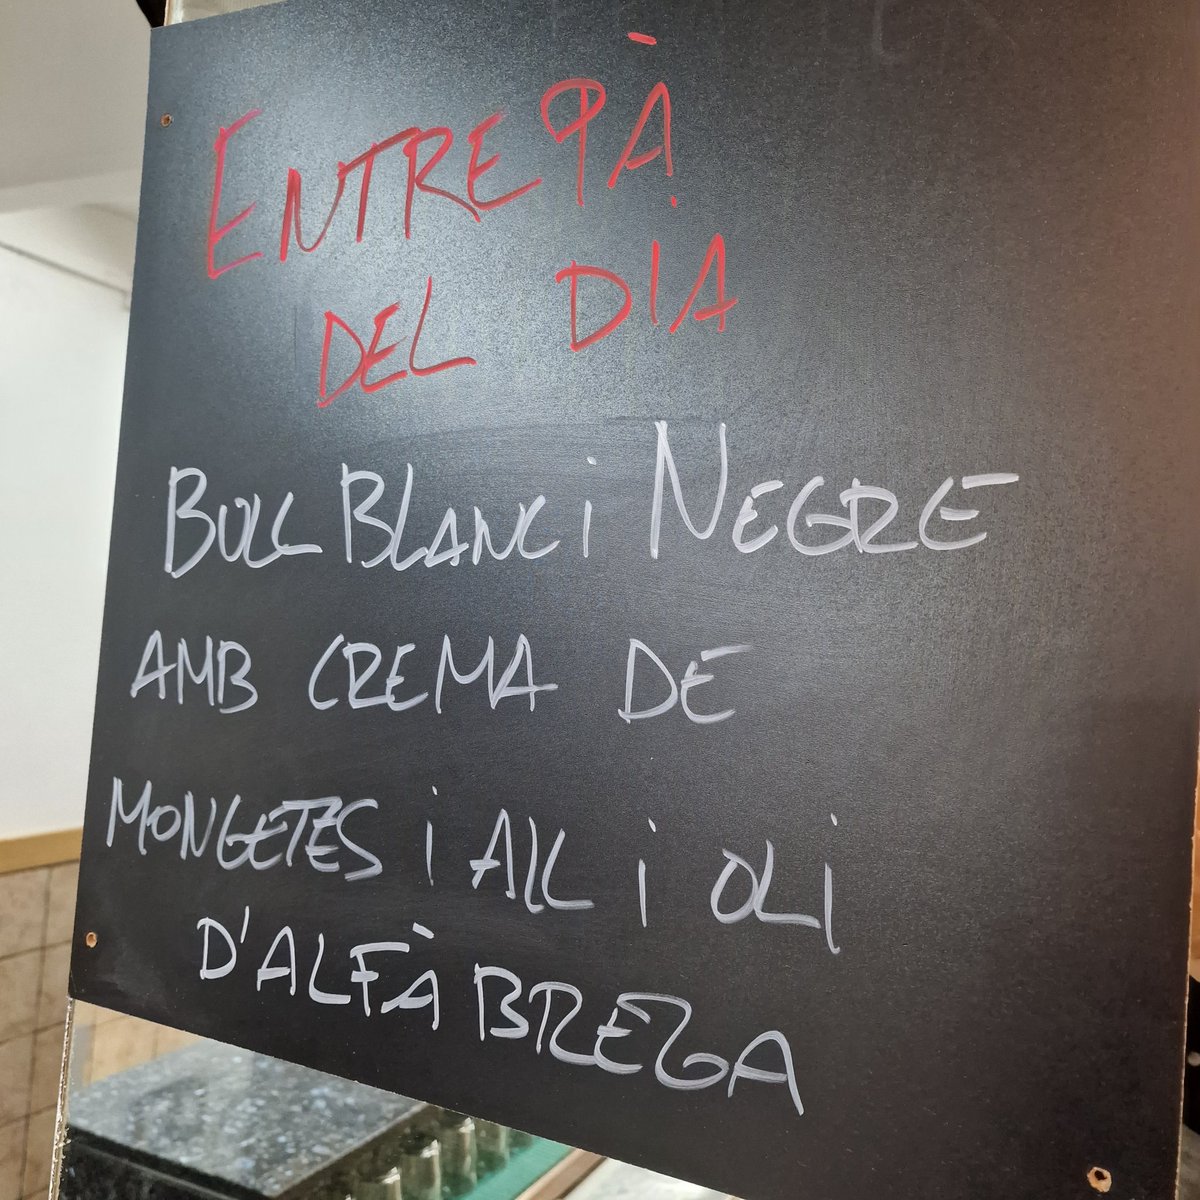 ENTREPÀ
DEL DIA
BULL BLANC i NEGRE
AMB CREMA DE
MONGETES i ALL i OLi
D'ALFÀBREGA